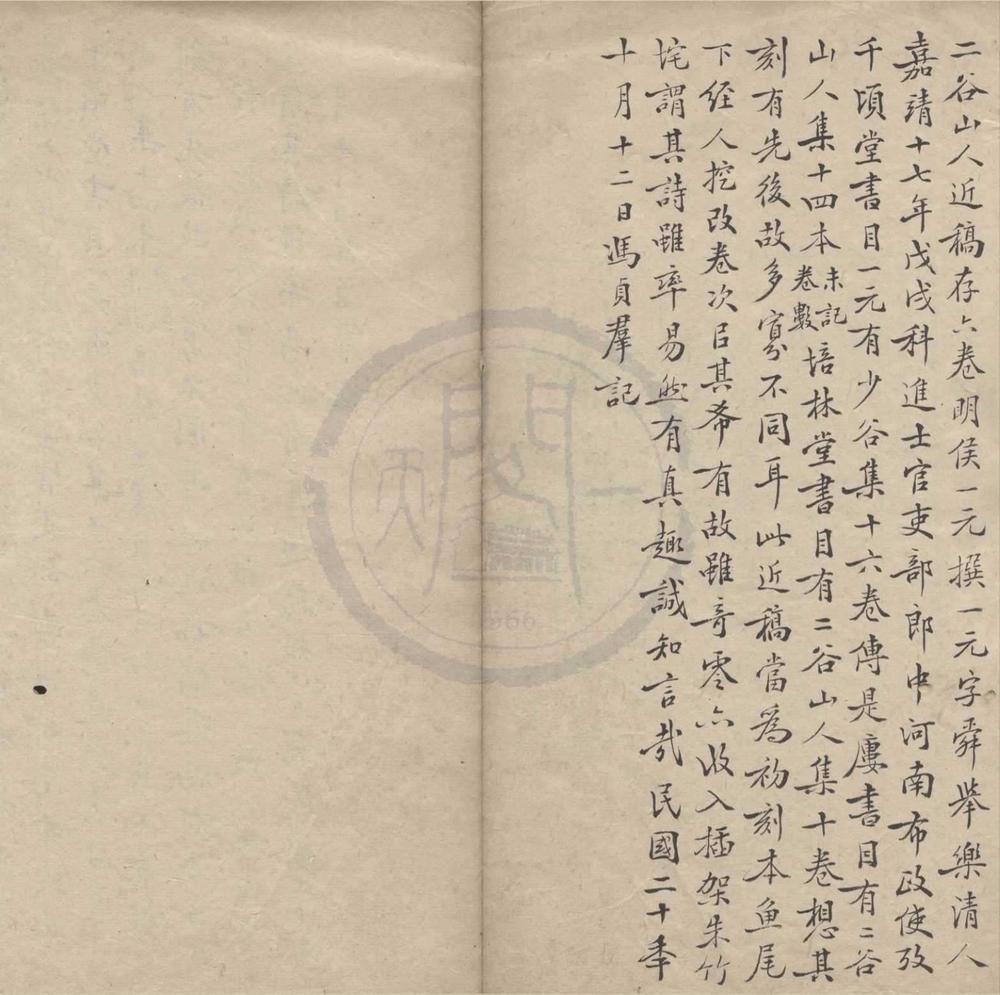 二谷山人近稿存六卷明侯一元撰一元字舜舉樂清人
嘉靖十七年戊戌科進士官吏部郎中河南布政使攷
千頃堂書目一元有少谷集十六卷傳是廔書目有二谷
山人集十四本未記卷數培林堂書目有二谷山人集十卷想其
刻有先後故多寡不同耳此近稿當為初刻本鱼尾
下经人挖改卷次㠯其希有故雖竒零亦收入插架朱竹
垞謂其詩雖率易然有真趣誠知言哉民國二十季
十月十二日馮貞羣記
天一閣
1566